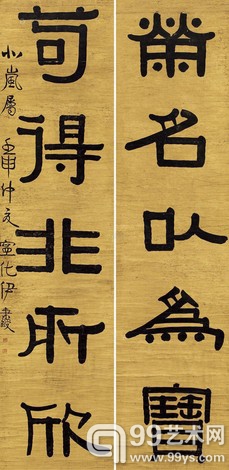 榮名以為寶
苟得非所欣
小嵐屬 壬申仲 寧化伊秉綬
99艺术网
www.99ys.com